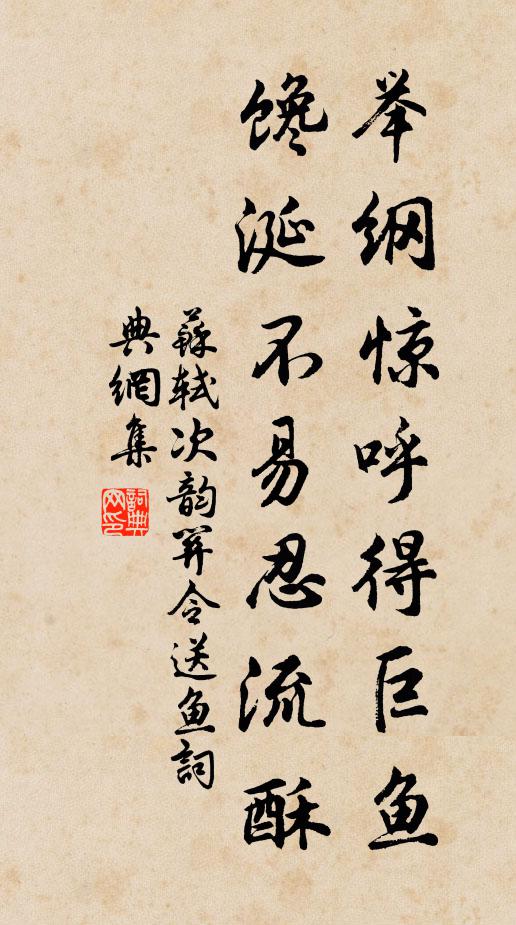 举纲惊呼得巨鱼
馋涎不易忍流酥
蘇轼次韵关令送鱼詞
典網集
詞典网印